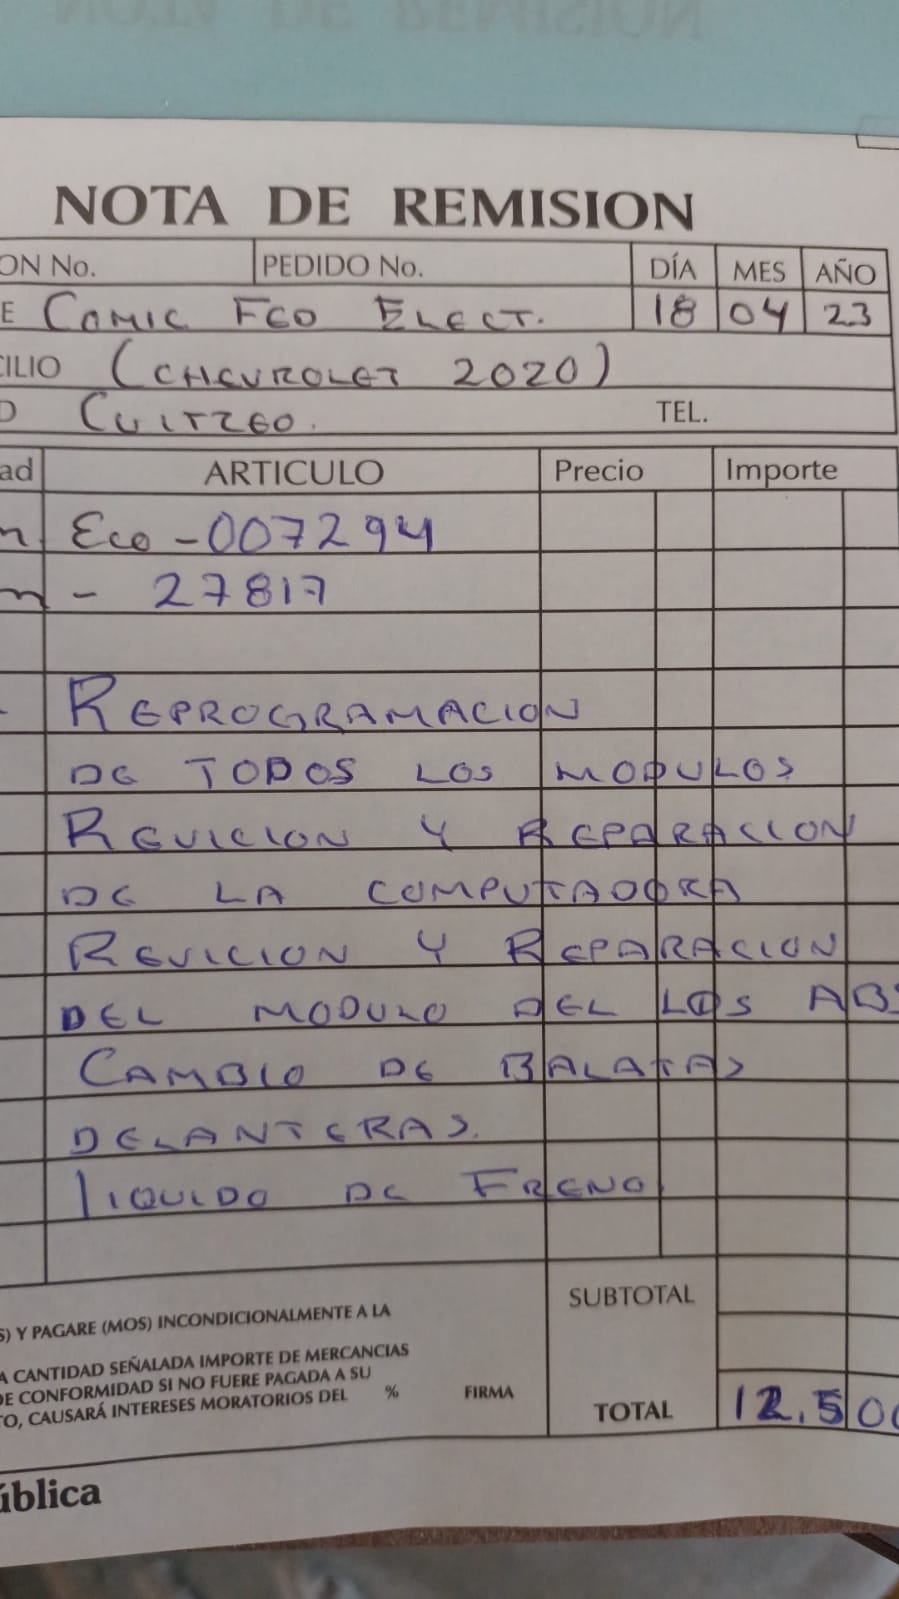 NOTA DE REMISION
ON No. PEDIDO No. DÍA MES AÑO
E COMIC FCO ELECT. 18 04 23
CILIO (CHEVROLET 2020)
D CUITZEO. TEL.
ad ARTICULO Precio Importe
n Eco - 007294
m - 27817
REPROGRAMACION
DE TODOS LOS MODULOS
REVICION Y REPARACION
DE LA COMPUTADORA
REVICION Y REPARACION
DEL MODULO DEL LOS ABS
CAMBIO DE BALATAS
DELANTERAS.
LIQUIDO DE FRENO
SUBTOTAL
S) Y PAGARE (MOS) INCONDICIONALMENTE A LA
A CANTIDAD SEÑALADA IMPORTE DE MERCANCIAS
DE CONFORMIDAD SI NO FUERE PAGADA A SU
TO, CAUSARÁ INTERESES MORATORIOS DEL % FIRMA
TOTAL 12,500
ública